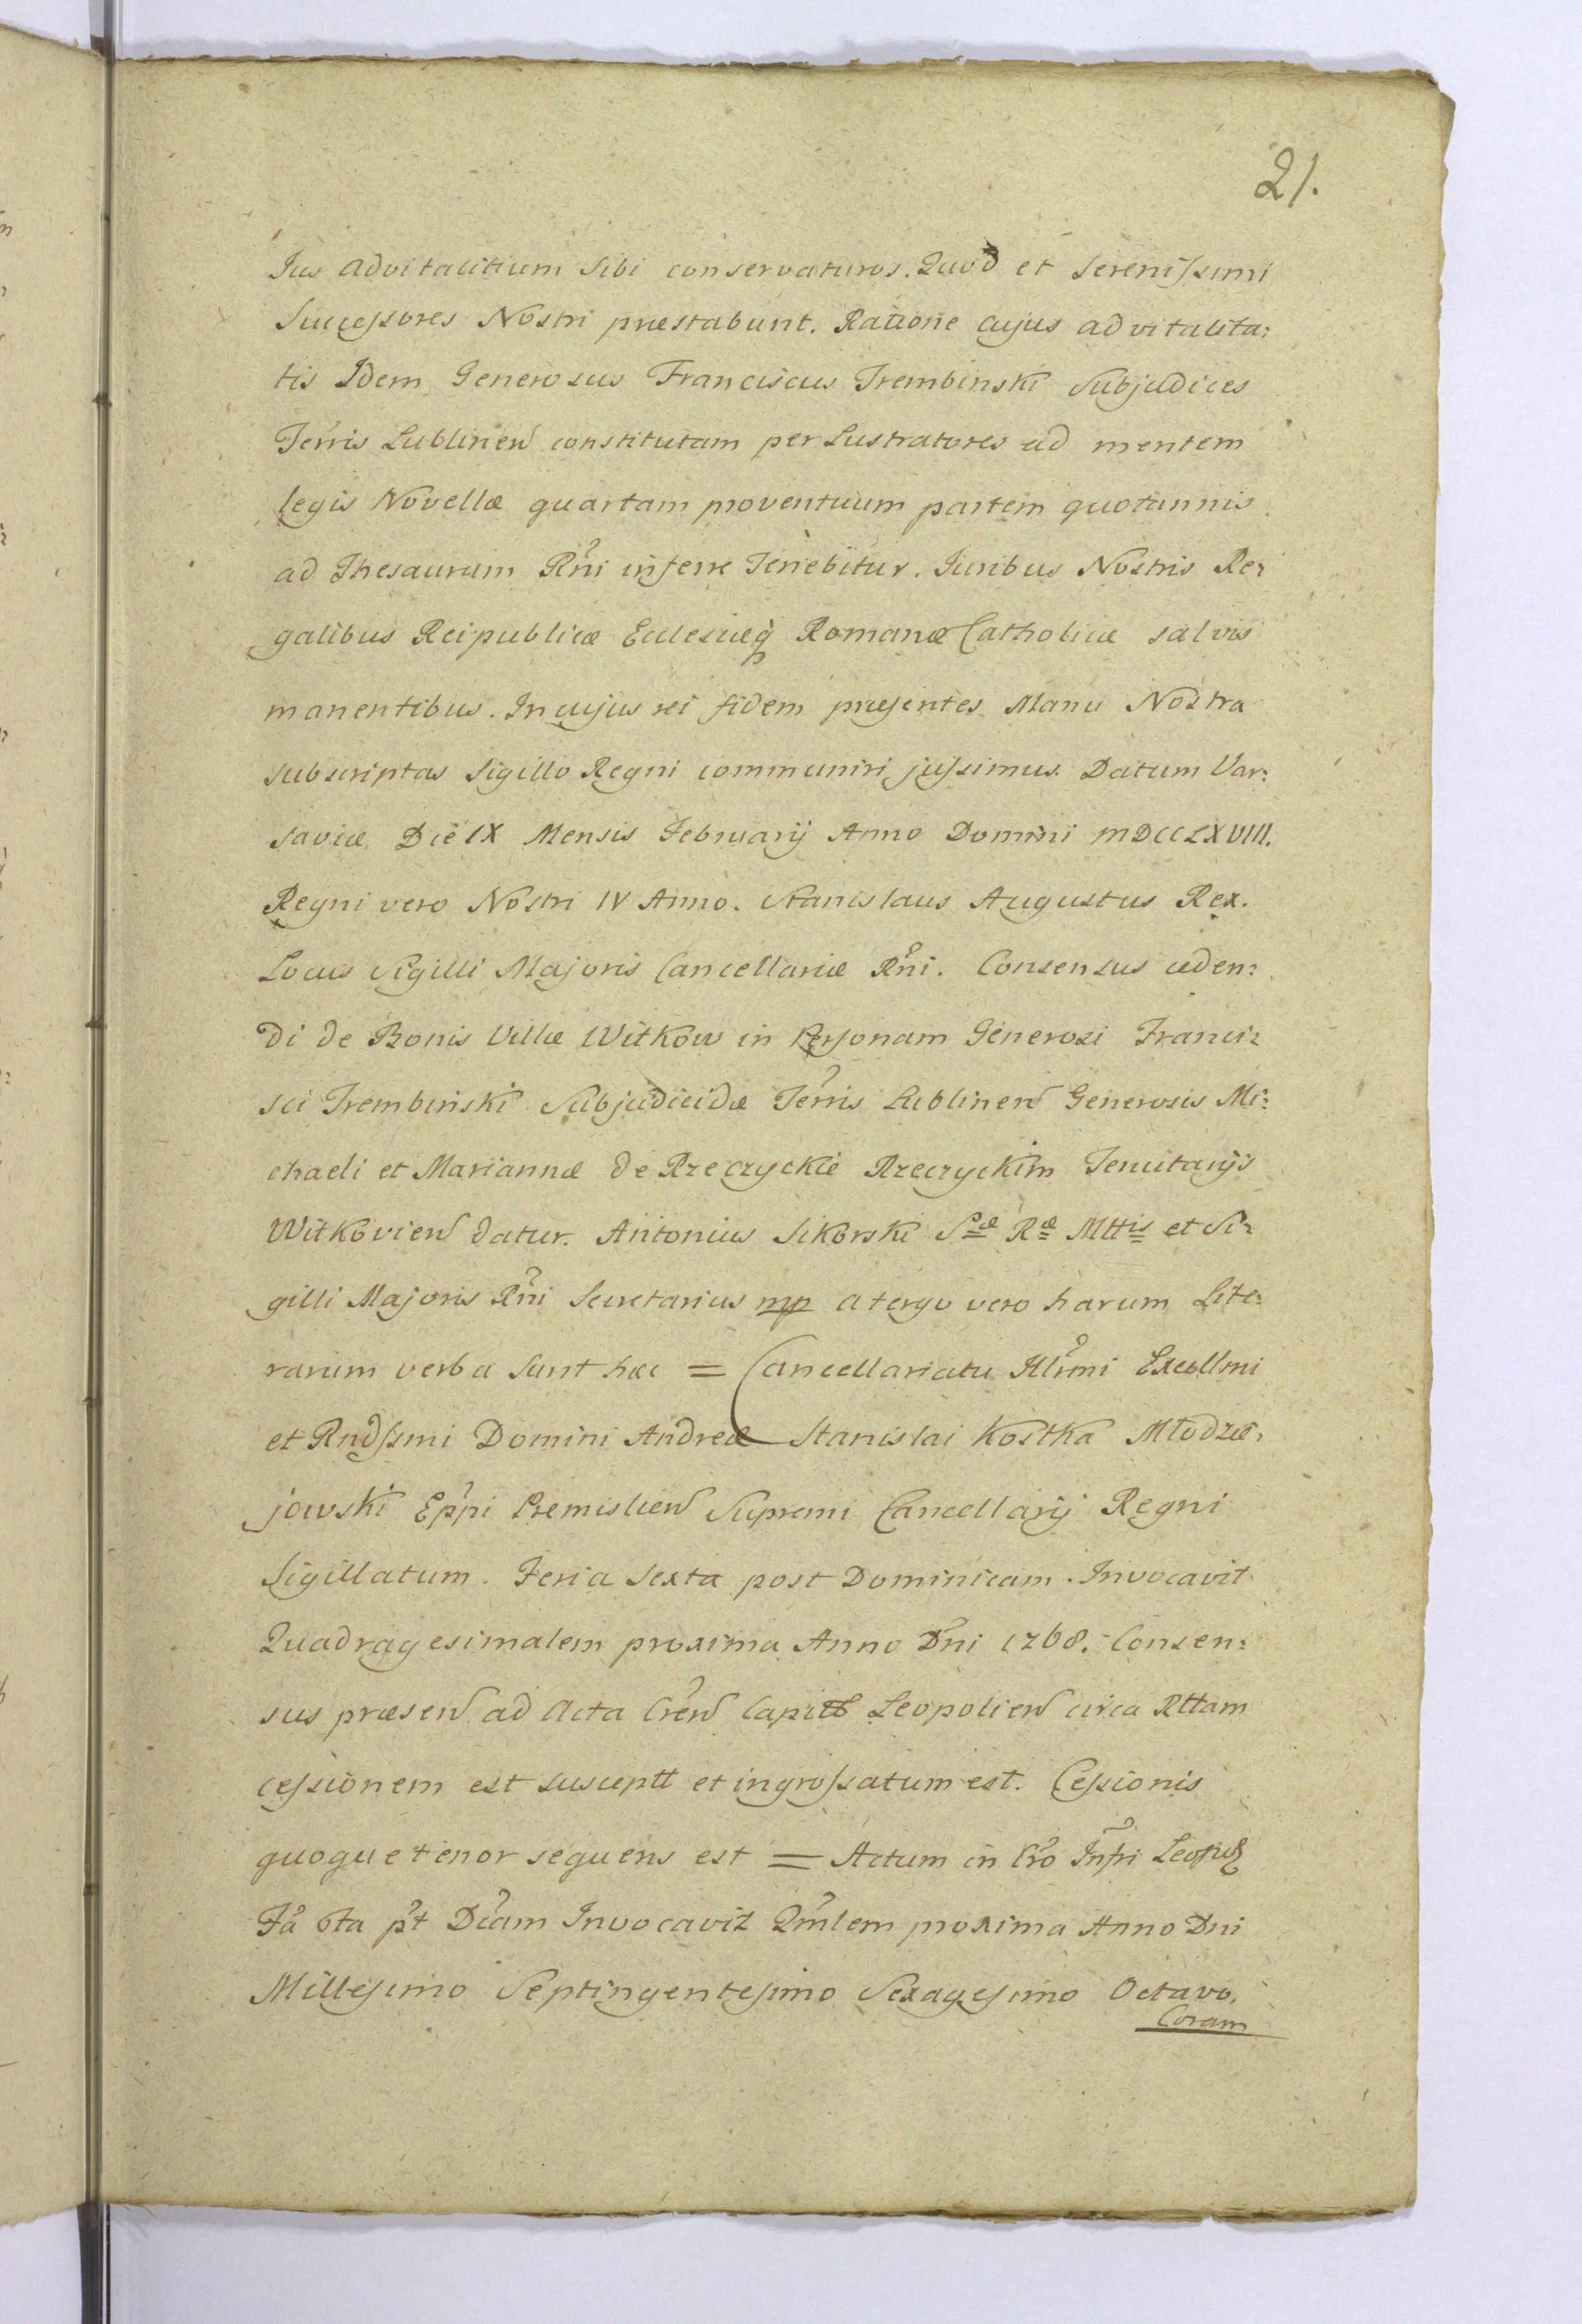 21.
Jus advitalitium sibi conservaturos. Quod et Serenissimi
Successores Nostri præstabunt. Ratione cujus advitalita:
tis Idem Generosus Franciscus Trembinski Subjudices
Terris Lublinen constitutam per Lustratores ad mentem
legis Novellæ quartam proventuum partem quotannis
ad Thesaurum Rni inferre Tenebitur. Juribus Nostris Re:
galibus Reipublicæ Ecclesiæq Romanæ Catholicæ salvis
manentibus. In cujus rei fidem præsentes Manu Nostra
subscriptas Sigillo Regni communiri jussimus. Datum Var:
saviæ Die IX Mensis Februarij Anno Domini MDCCLXVIII.
Regni vero Nostri IV Anno. Stanislaus Augustus Rex.
Locus Sigilli Majoris Cancellariæ Rni. Consensus ceden:
di de Bonis Villæ Witkow in Personam Generosi Franci:
sci Trembinski Subjudicidæ Terris Lublinen Generosis Mi:
chaeli et Mariannæ de Rzeczyckie Rzeczyckim Tenutarijs
Witkovien datur. Antonius Sikorski Sæ Ræ Mttis et Si:
gilli Majoris Rni Secretarius mp a tergo vero harum Lite:
rarum verba sunt hæc = Cancellariatu Illrmi Excellmi
et Rndssmi Domini Andreæ Stanislai Kostka Młodzie:
jowski Eppi Premislien Supremi Cancellarij Regni
Sigillatum. Feria Sexta post Dominicam Invocavit
Quadragesimalem proxima Anno Dni 1768. Consen:
sus præsen ad Acta Cren Capitl Leopolien circa Rttam
cessionem est susceptt et ingrossatum est. Cessionis
quoque tenor sequens est = Actum in Cro Infri Leopol
Fa 6ta pt Dicam Invocavit Qmlem proxima Anno Dni
Millesimo Septingentesimo Sexagesimo Octavo.
Coram